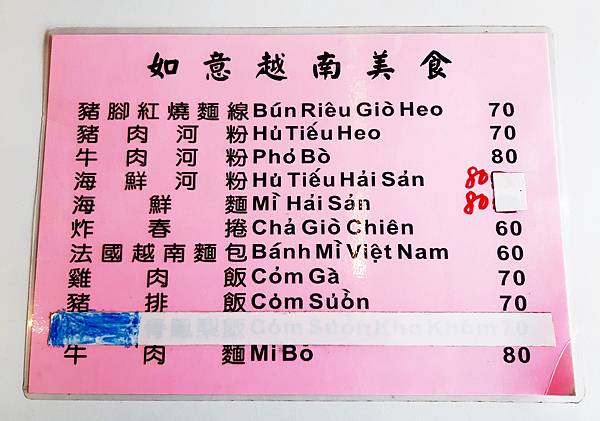 如意越南美食
豬腳紅燒麵線 Bún Riêu Giò Heo 70
豬肉河粉 Hủ Tiếu Heo 70
牛肉河粉 Phở Bò 80
海鮮河粉 Hủ Tiếu Hải Sản 80
海鮮麵 Mì Hải Sản 80
炸春捲 Chả Giò Chiên 60
法國越南麵包 Bánh Mì Việt Nam 60
雞肉飯 Cỏm Gà 70
豬排飯 Cỏm Suồn 70
鳳梨飯 Cỏm Suồn Kho Khóm 70
牛肉麵 Mì Bò 80